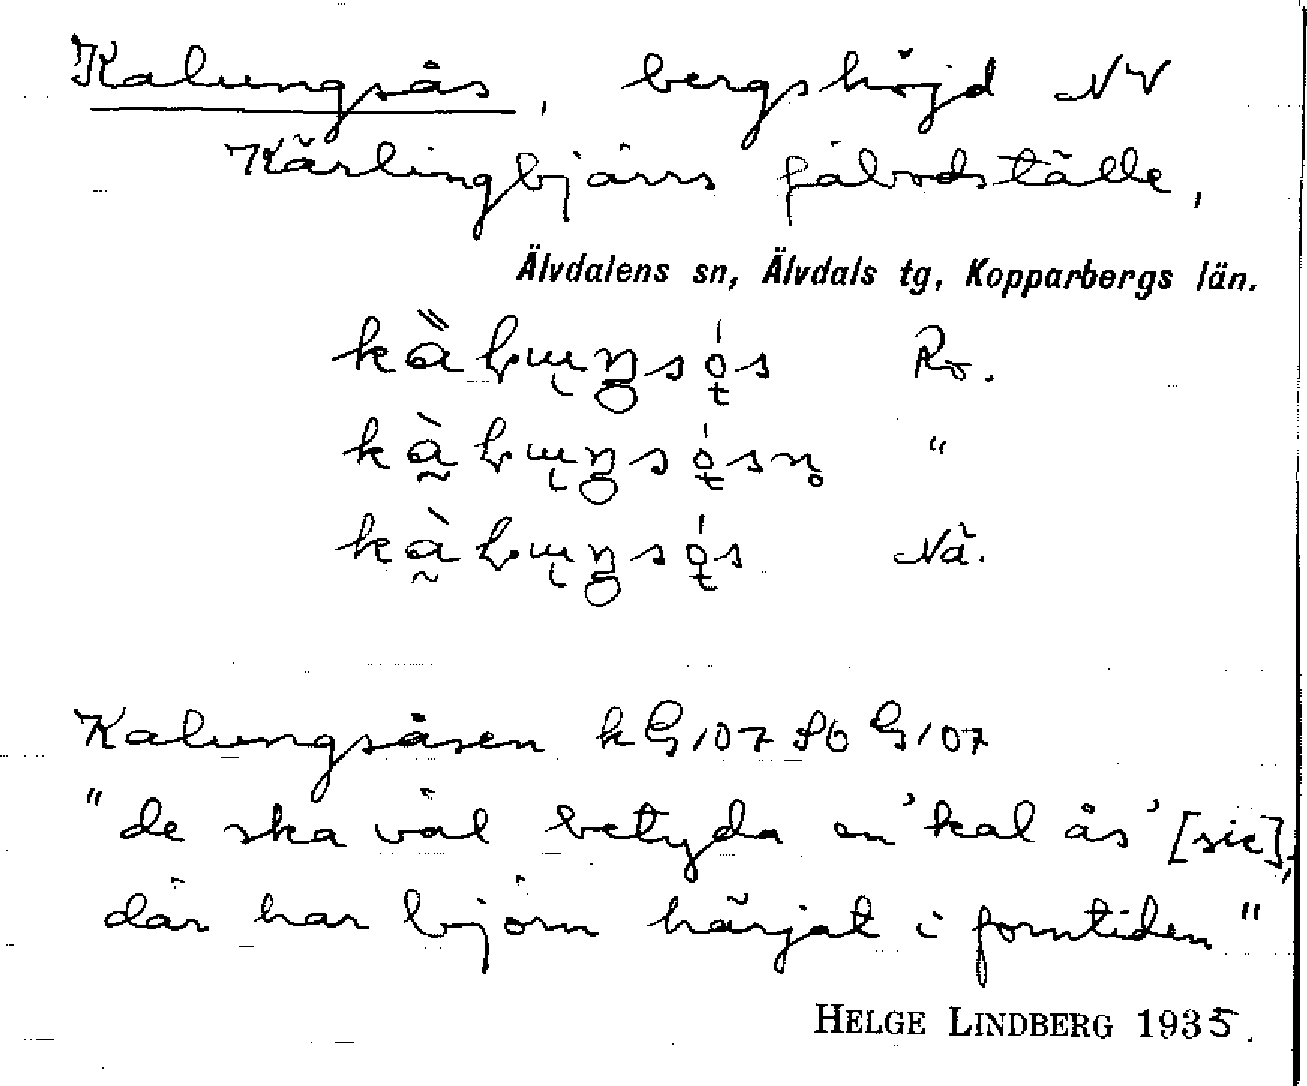 Kalungsås, bergshöjd NV
Kärlingbjörs fäbodställe,
Älvdalens sn, Älvdals tg, Kopparbergs län.
Ro.
"
Nä.
Kalungsåsen kG107 Sb G107
"de ska väl betyda en 'kal ås' [sic],
där har björn härjat i forntiden"
HELGE LINDBERG 1935.